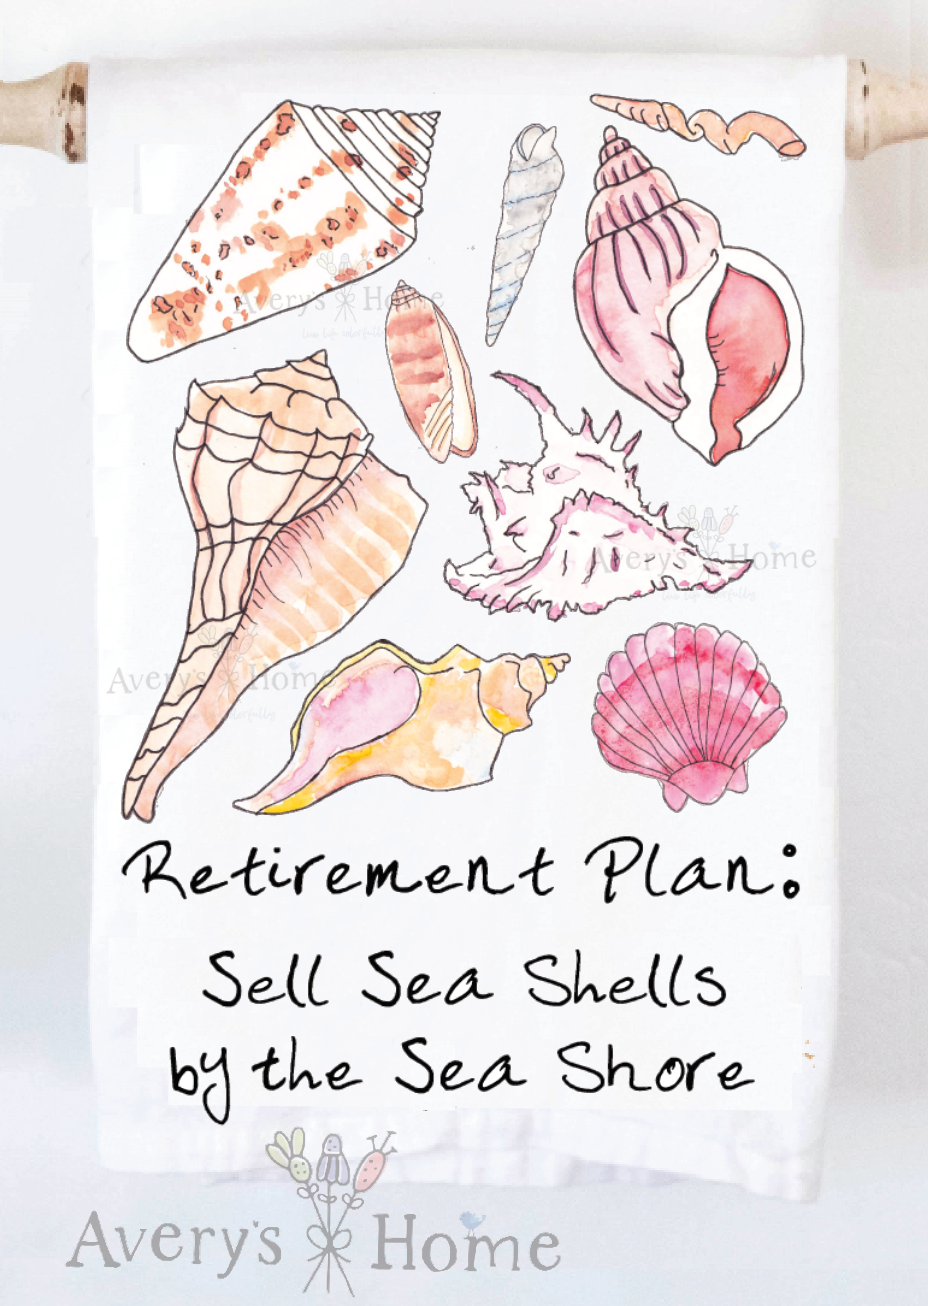 Avery's Home
live life colorfully
Avery's Home
live life colorfully
Avery's Home
colorfully
Retirement Plan:
Sell Sea Shells
by the Sea Shore
Avery's Home